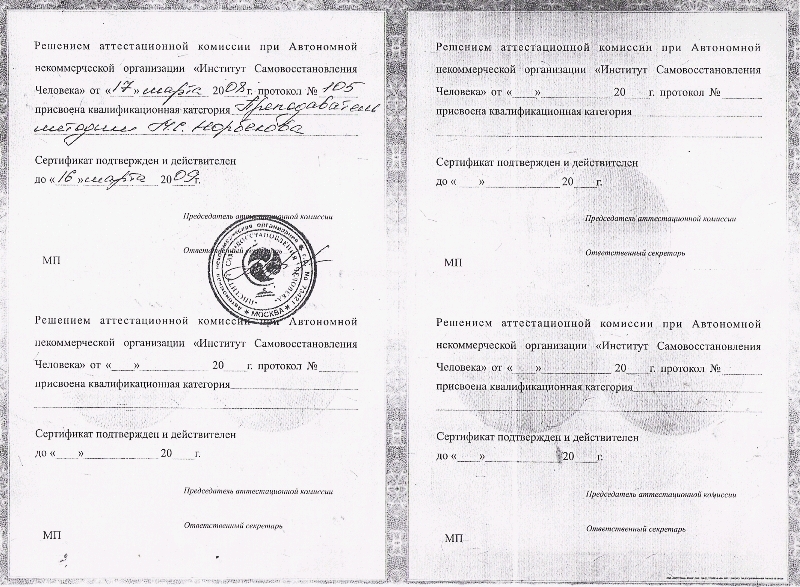 Решением аттестационной комиссии при Автономной
некоммерческой организации «Институт Самовосстановления
Человека» от «17» марта 2008г. протокол № 105
присвоена квалификационная категория Преподаватель
методики М.С. Норбекова
Сертификат подтвержден и действителен
до «16» марта 2009г.
Председатель аттестационной комиссии
Ответственный секретарь
МП
МОСКВА
Решением аттестационной комиссии при Автономной
некоммерческой организации «Институт Самовосстановления
Человека» от «____»____________ 20____г. протокол №______
присвоена квалификационная категория____________________
Сертификат подтвержден и действителен
до «____»____________ 20____г.
Председатель аттестационной комиссии
Ответственный секретарь
МП
Решением аттестационной комиссии при Автономной
некоммерческой организации «Институт Самовосстановления
Человека» от «____»____________ 20____г. протокол №______
присвоена квалификационная категория____________________
Сертификат подтвержден и действителен
до «____»____________ 20____г.
Председатель аттестационной комиссии
Ответственный секретарь
МП
Решением аттестационной комиссии при Автономной
некоммерческой организации «Институт Самовосстановления
Человека» от «____»____________ 20____г. протокол №______
присвоена квалификационная категория____________________
Сертификат подтвержден и действителен
до «____»____________ 20____г.
Председатель аттестационной комиссии
Ответственный секретарь
МП